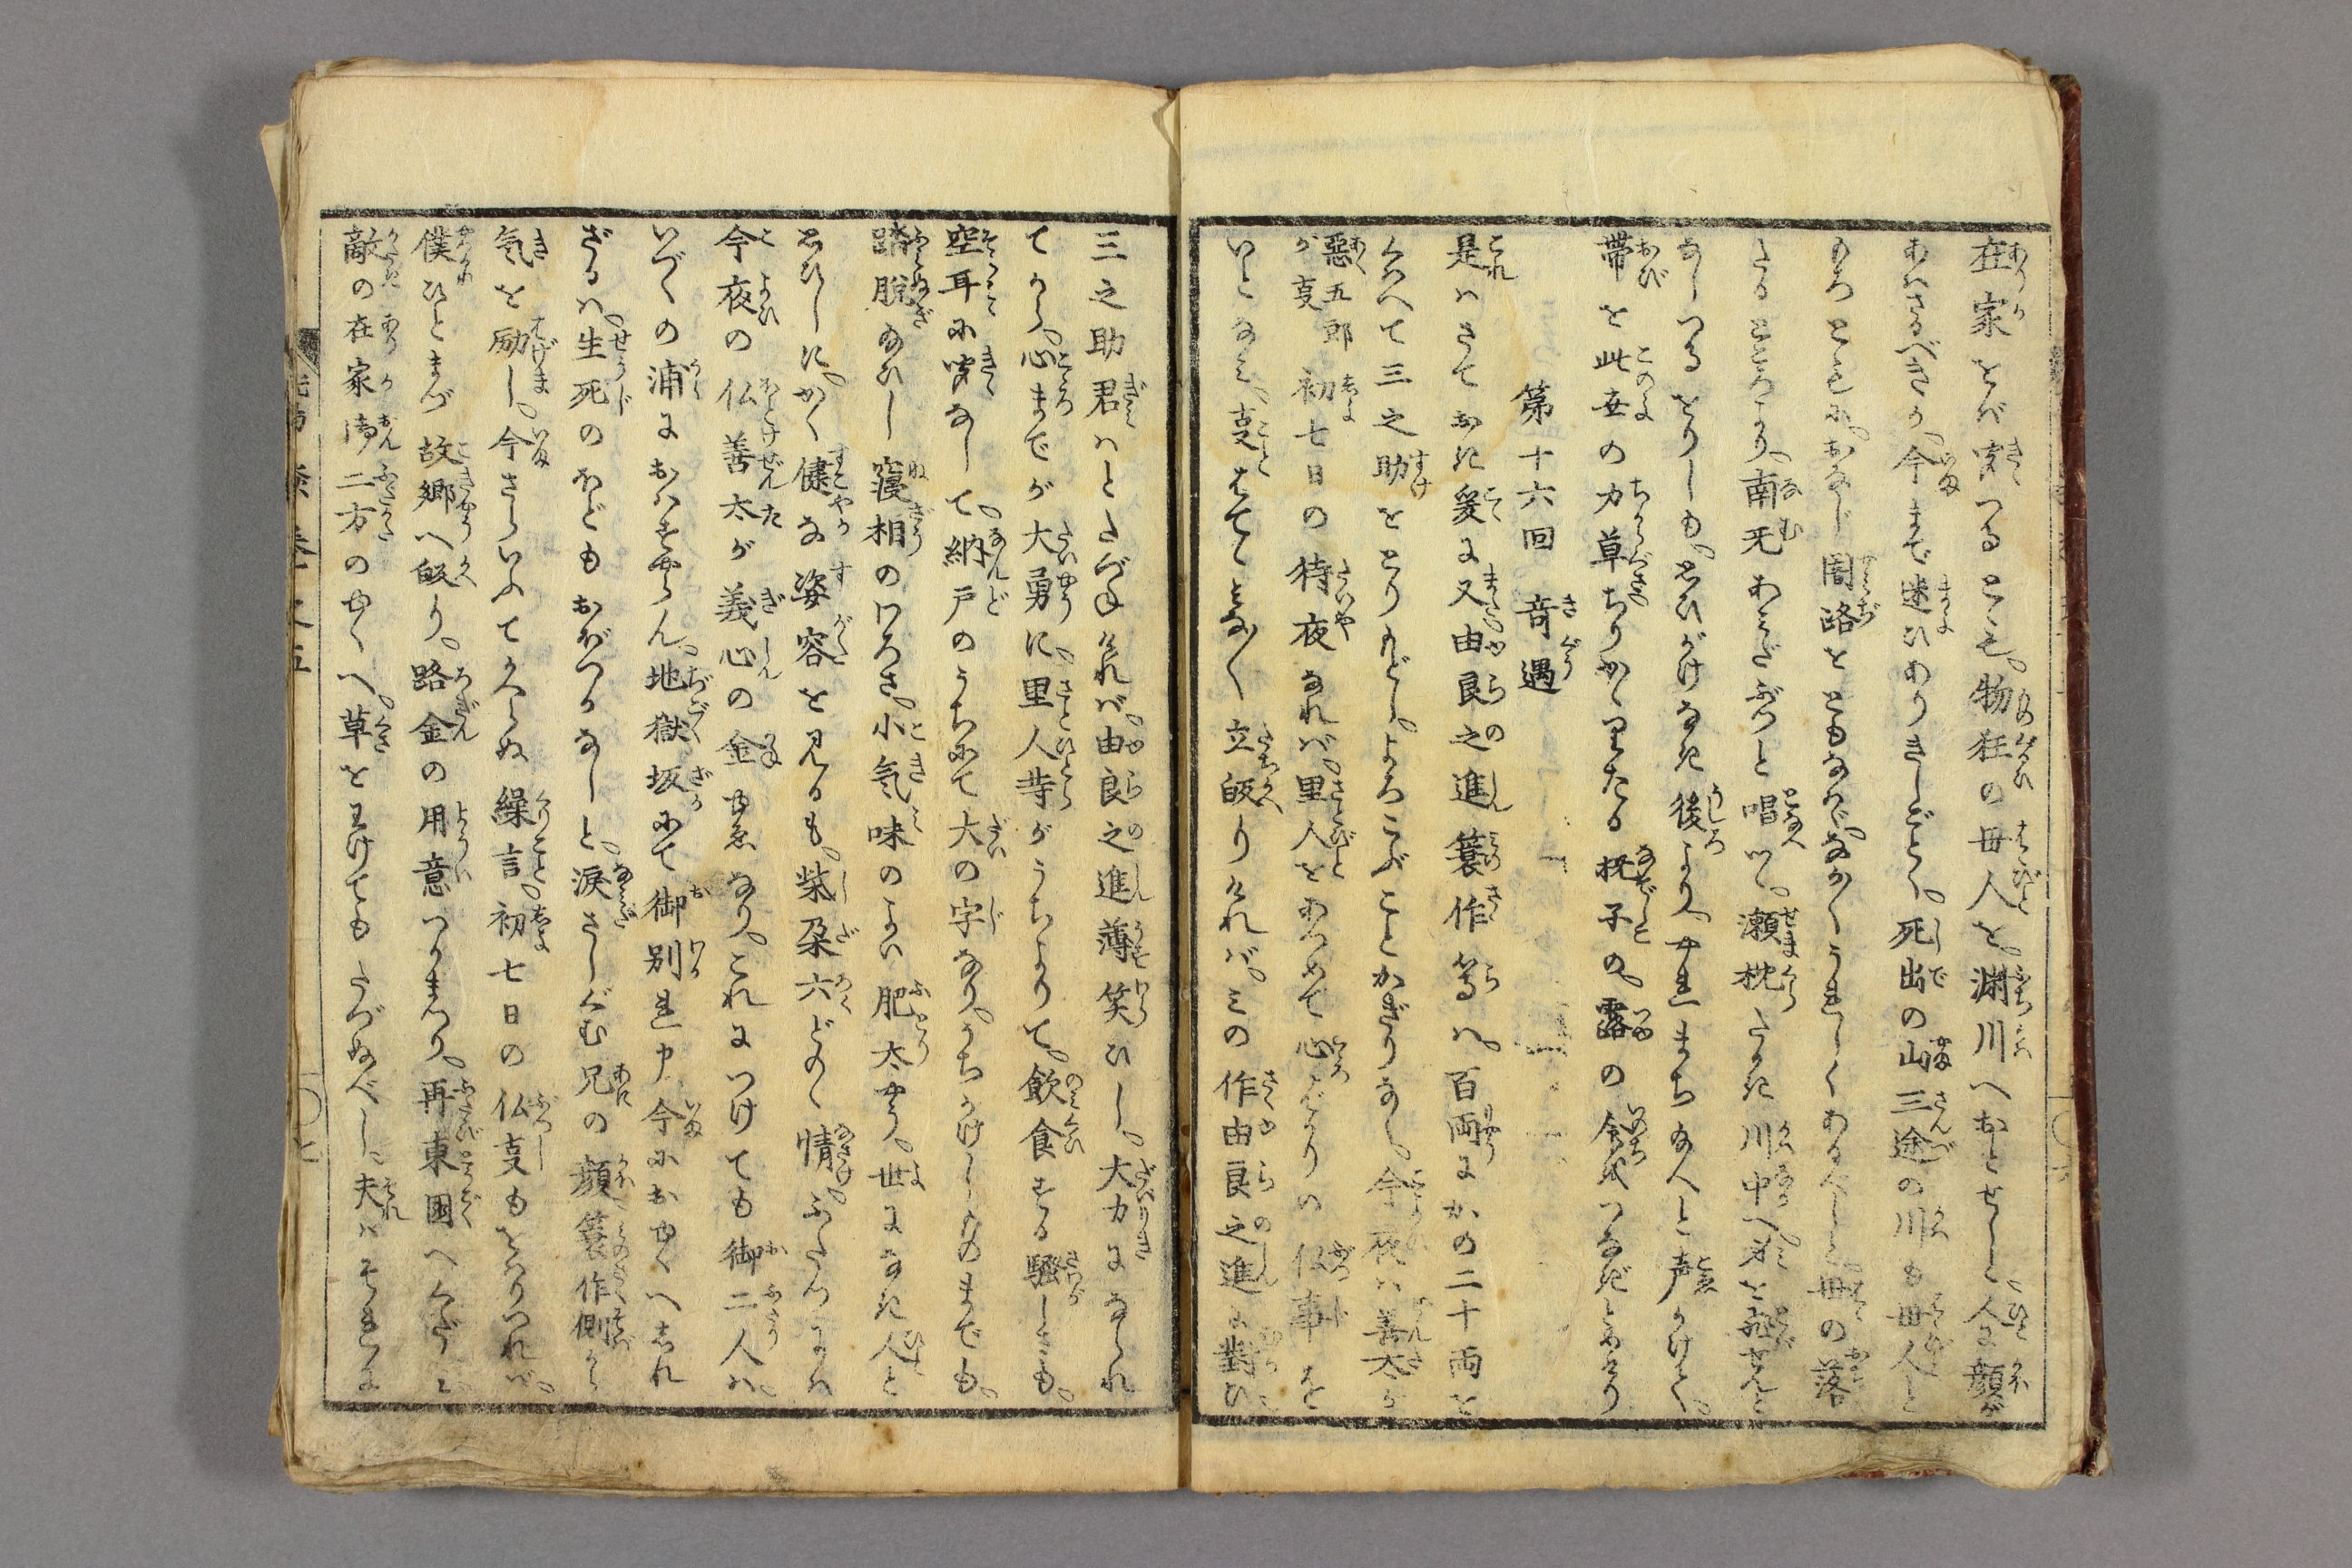 在家をば聞つるこそ。物狂の母人を。渕川へおとせしと人に顔が
あはさるべきか。今まで迷ひありきしぞとて。死出の山三途の川も母人と
もろともに。おなじ闇路をともなはゞ。なか〳〵うれしくあるべしと。母の落
たるところより。南無あみだぶつと唱つゝ。瀬枕たかき川中へ。身を飛せんと
なしつるをりしも。思ひがけなき後より。やれまち給へと声かけて。
帯を此世の力草ちりかゝりたる撫子の。露の命をつなぎとめけり
第十六回 奇遇
是はさておき爰に又由良之進簑作等は。百両にかの二十両を
くはへて三之助をとりもどし。よろこぶことかぎりなし。今夜は善太が
悪五郎が初七日の待夜なれば。里人をあつめて心ばかりの仏事を
いとなみ。事はてゝみな〳〵立皈りければ。みの作由良之進に対ひ
三之助君はとたづぬれば。由良之進薄笑ひし。大力になられ
てから。心までが大勇に。里人等がうちよりて。飲食する騒しさも。
空耳に聞なして。納戸のうちにて大の字なり。うちかけしものまでも。
踏脱給ひし寝相のわろさ。小気味のよい肥太やう。世になき人と
思ひしに。かく健な姿容を見るも。柴朶六どのゝ情。ふたつには
今夜の仏善太が義心の金ゆゑなり。これにつけても御二人は。
いづくの浦におはすやらん。地獄坂にて御別れ申今におゆくへしれ
ざるは。生死のほどもおぼつかなしと。涙さしぐむ兄の顔簑作側から
気を励し。今さらいふてかへらぬ繰言。初七日の仏事もをはりつれば。
僕ひとまづ故郷へ皈り。路金の用意つかまつり。再東国へくだりて
敵の在家御二方のゆくへ。草をわけてもたづぬべし。夫はそれに